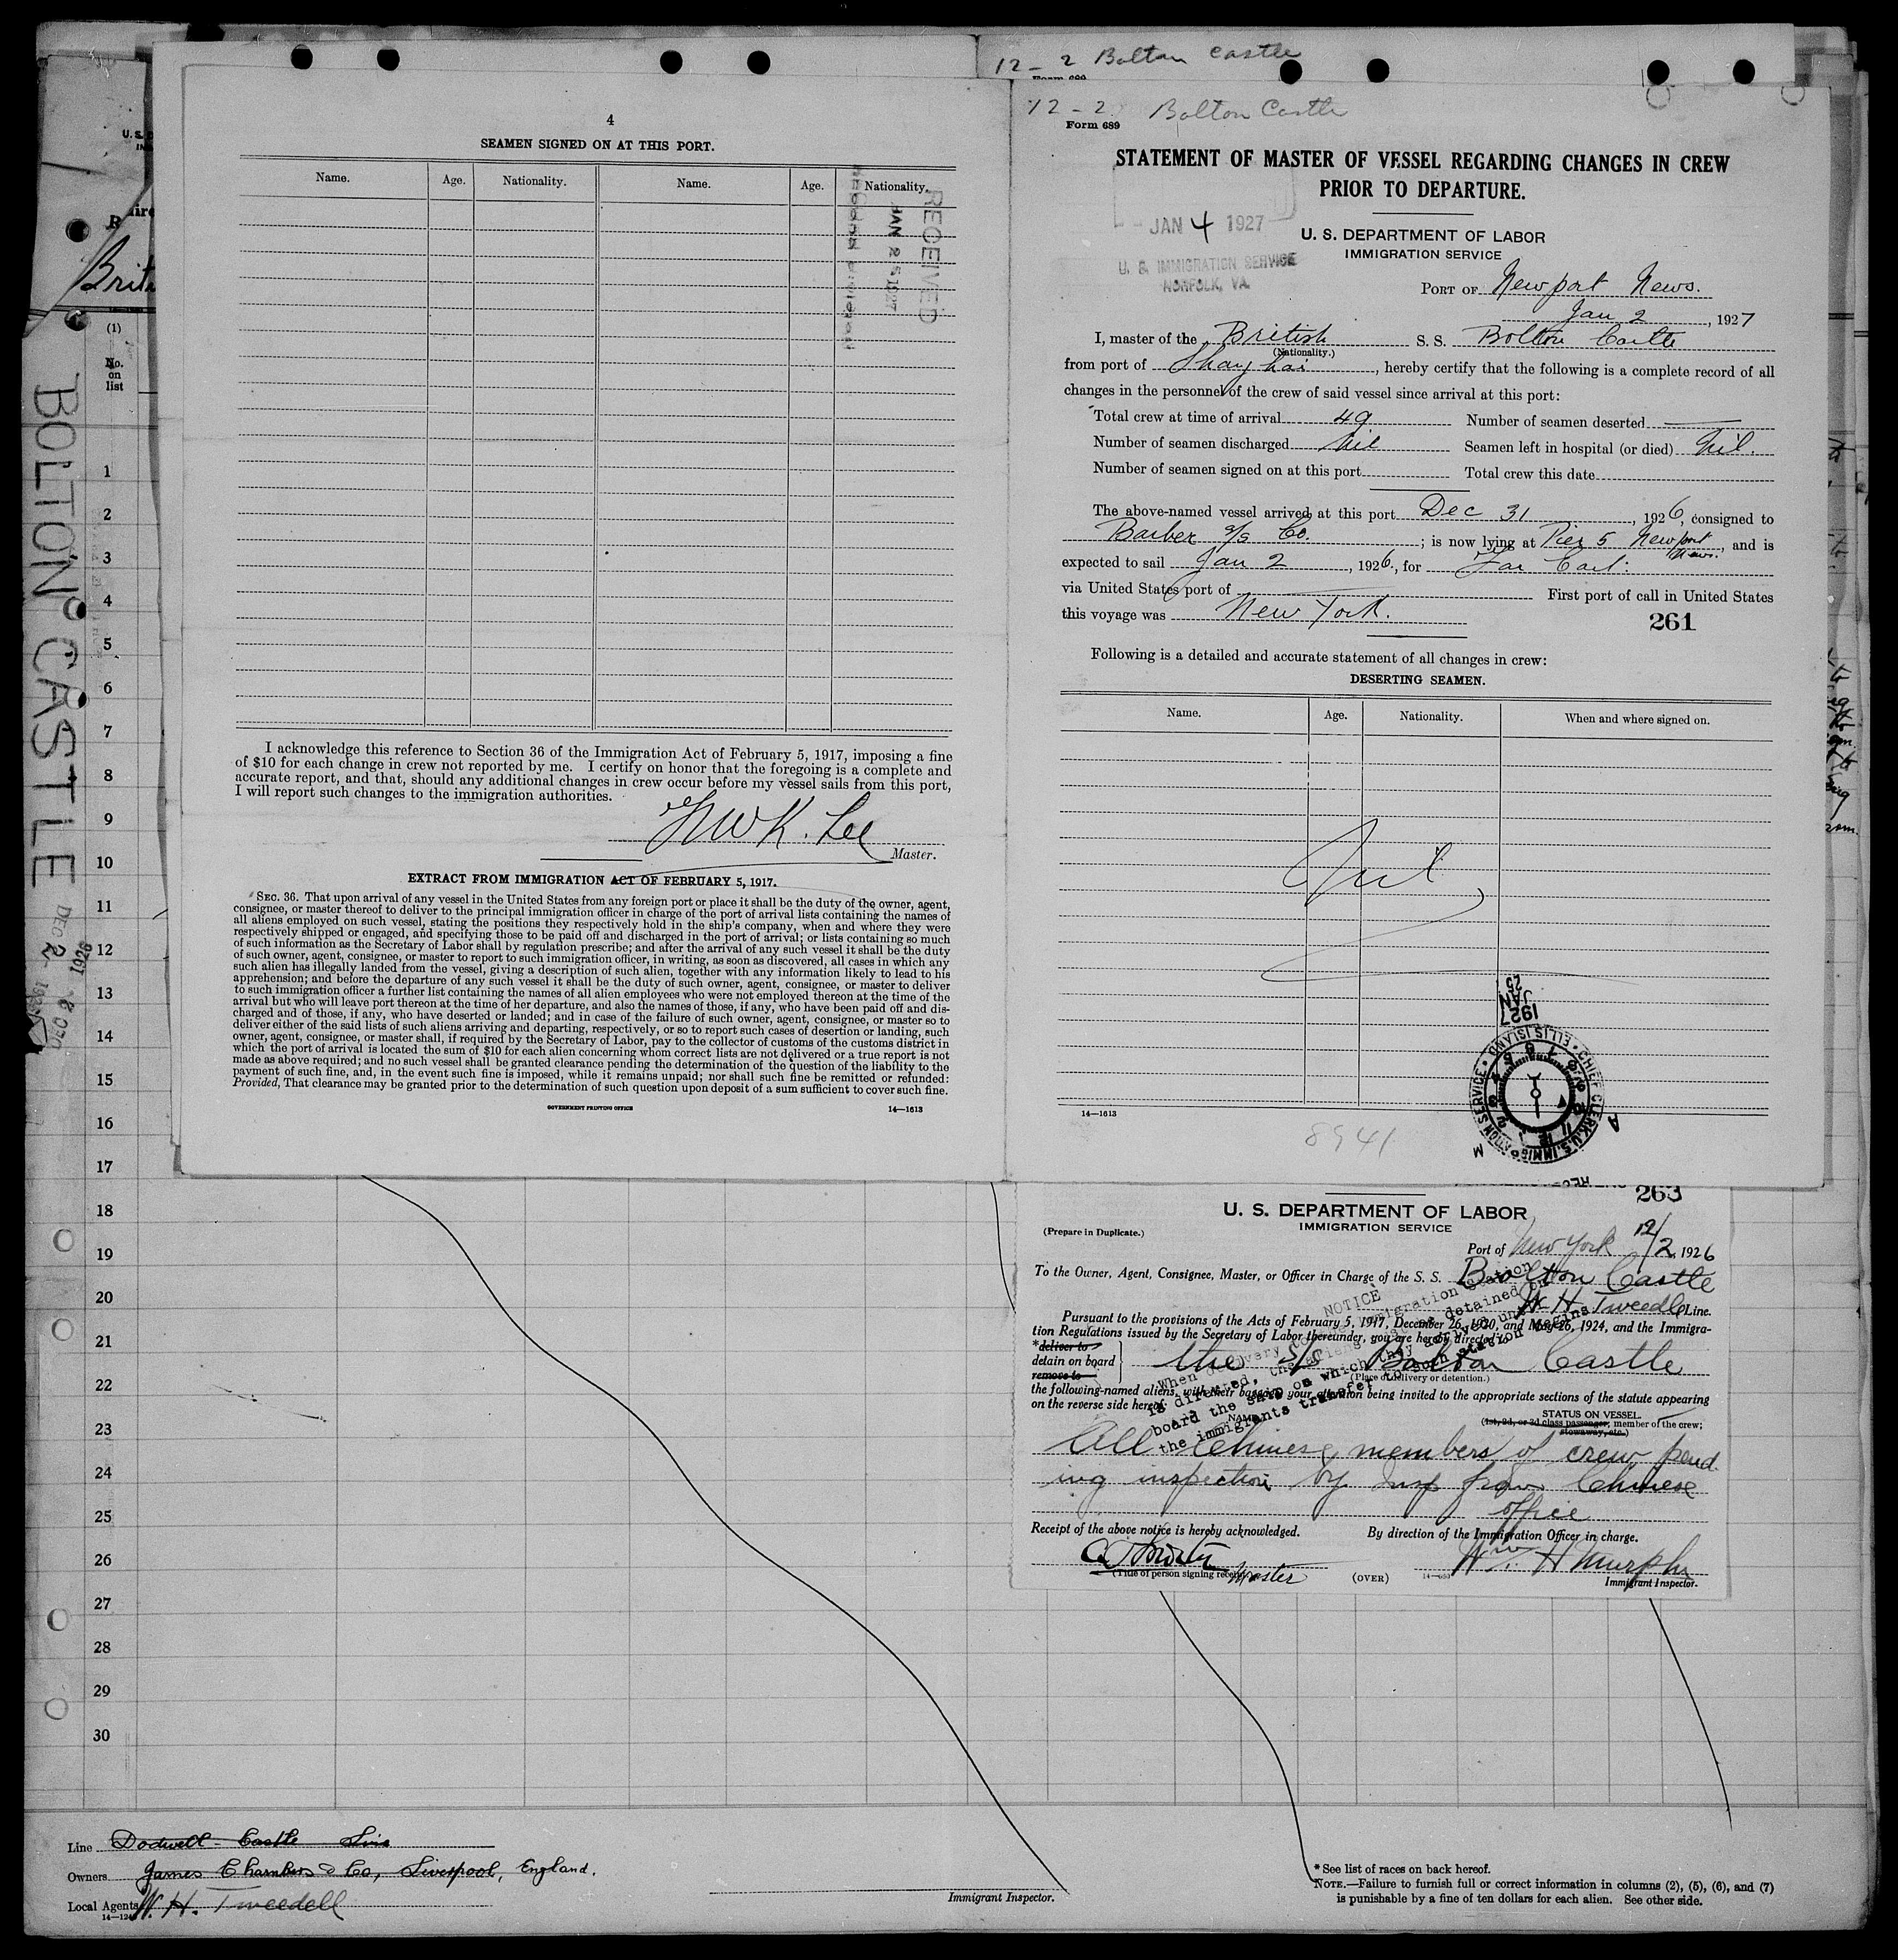 12 - 2 Bolton Castle
4
SEAMEN SIGNED ON AT THIS PORT.
Name. Age. Nationality. Name. Age. Nationality.
RECEIVED
JAN 25 1927
I acknowledge this reference to Section 36 of the Immigration Act of February 5, 1917, imposing a fine
of $10 for each change in crew not reported by me. I certify on honor that the foregoing is a complete and
accurate report, and that, should any additional changes in crew occur before my vessel sails from this port,
I will report such changes to the immigration authorities.
Lee
Master.
EXTRACT FROM IMMIGRATION ACT OF FEBRUARY 5, 1917.
SEC. 36. That upon arrival of any vessel in the United States from any foreign port or place it shall be the duty of the owner, agent,
consignee, or master thereof to deliver to the principal immigration officer in charge of the port of arrival lists containing the names of
all aliens employed on such vessel, stating the positions they respectively hold in the ship's company, when and where they were
respectively shipped or engaged, and specifying those to be paid off and discharged in the port of arrival; or lists containing so much
of such information as the Secretary of Labor shall by regulation prescribe; and after the arrival of any such vessel it shall be the duty
of such owner, agent, consignee, or master to report to such immigration officer, in writing, as soon as discovered, all cases in which any
such alien has illegally landed from the vessel, giving a description of such alien, together with any information likely to lead to his
apprehension; and before the departure of any such vessel it shall be the duty of such owner, agent, consignee, or master to deliver
to such immigration officer a further list containing the names of all alien employees who were not employed thereon at the time of the
arrival but who will leave port thereon at the time of her departure, and also the names of those, if any, who have been paid off and dis-
charged and of those, if any, who have deserted or landed; and in case of the failure of such owner, agent, consignee, or master so to
deliver either of the said lists of such aliens arriving and departing, respectively, or so to report such cases of desertion or landing, such
owner, agent, consignee, or master shall, if required by the Secretary of Labor, pay to the collector of customs of the customs district in
which the port of arrival is located the sum of $10 for each alien concerning whom correct lists are not delivered or a true report is not
made as above required; and no such vessel shall be granted clearance pending the determination of the question of the liability to the
payment of such fine, and, in the event such fine is imposed, while it remains unpaid; nor shall such fine be remitted or refunded:
Provided, That clearance may be granted prior to the determination of such question upon deposit of a sum sufficient to cover such fine.
GOVERNMENT PRINTING OFFICE 14—1613
12 - 2 Bolton Castle
Form 689
STATEMENT OF MASTER OF VESSEL REGARDING CHANGES IN CREW
PRIOR TO DEPARTURE.
JAN 4 1927
U. S. IMMIGRATION SERVICE
NORFOLK, VA.
U. S. DEPARTMENT OF LABOR
IMMIGRATION SERVICE
PORT OF Newport News.
Jan 2, 1927
I, master of the British S. S. Bolton Castle
(Nationality.)
from port of Shanghai, hereby certify that the following is a complete record of all
changes in the personnel of the crew of said vessel since arrival at this port:
Total crew at time of arrival 49 Number of seamen deserted —
Number of seamen discharged Nil Seamen left in hospital (or died) Nil.
Number of seamen signed on at this port Total crew this date
The above-named vessel arrived at this port Dec 31, 1926, consigned to
Barber S/S Co.; is now lying at Pier 5 Newport News., and is
expected to sail Jan 2, 1926., for Far East.
via United States port of — First port of call in United States
this voyage was New York.
261
Following is a detailed and accurate statement of all changes in crew:
DESERTING SEAMEN.
Name. Age. Nationality. When and where signed on.
Nil
1927
JAN
25
CHIEF CLERK, U.S. IMMIGRATION SERVICE • ELLIS ISLAND
A M
14—1613
8941
263
U. S. DEPARTMENT OF LABOR
IMMIGRATION SERVICE
(Prepare in Duplicate.)
Port of New York 12/2, 1926
To the Owner, Agent, Consignee, Master, or Officer in Charge of the S. S. Bolton Castle
W H Tweedle Line.
Pursuant to the provisions of the Acts of February 5, 1917, December 26, 1920, and May 26, 1924, and the Immigra-
tion Regulations issued by the Secretary of Labor thereunder, you are hereby directed to
*deliver to
detain on board
remove to
the S/S Bolton Castle
(Place of delivery or detention.)
the following-named aliens, with their baggage, your attention being invited to the appropriate sections of the statute appearing
on the reverse side hereof.
NOTICE
NAME
STATUS ON VESSEL
(1st, 2d, or 3d class passenger, member of the crew;
stowaway, etc.)
All Chinese members of crew pend
ing inspection by Insp from Chinese
office
Receipt of the above notice is hereby acknowledged. By direction of the Immigration Officer in charge.
Wm H Murphy
(Title of person signing receipt) Master (OVER) Immigrant Inspector.
BOLTON CASTLE
(1)
No.
on
list
1
2
3
4
5
6
7
8
9
10
11
12
13
14
15
16
17
18
19
20
21
22
23
24
25
26
27
28
29
30
Line Dodwell - Castle Line
Owners James Chambers & Co, Liverpool, England.
Local Agents W. H. Tweedell
Immigrant Inspector.
* See list of races on back hereof.
NOTE.—Failure to furnish full or correct information in columns (2), (5), (6), and (7)
is punishable by a fine of ten dollars for each alien. See other side.